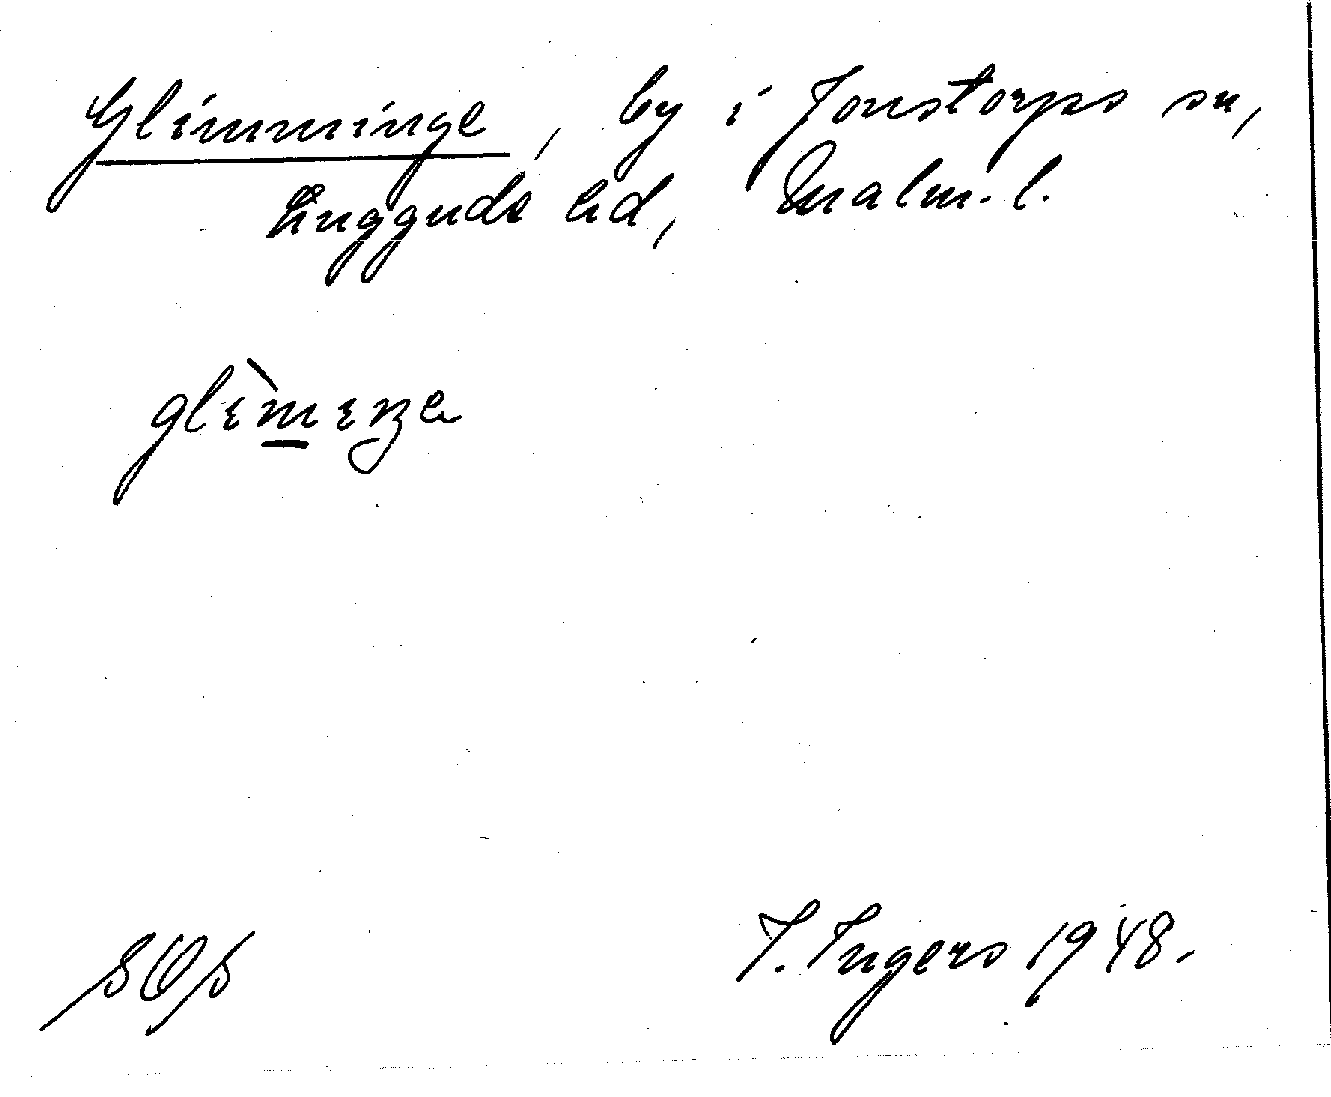 Glimminge, by i Jonstorps sn,
Luggude hd, Malm. l.
SOS
I. Ingers 1948.